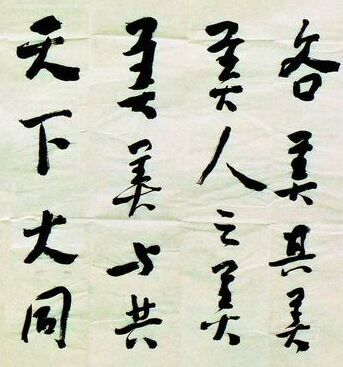 各美其美
美人之美
美美与共
天下大同